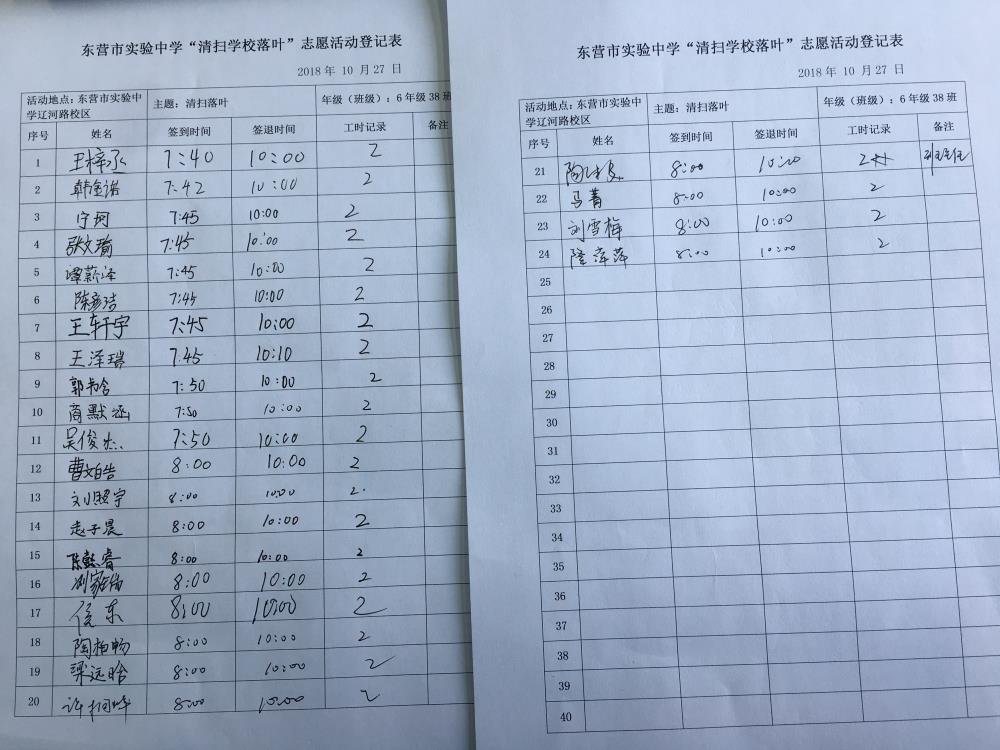 东营市实验中学“清扫学校落叶”志愿活动登记表
2018 年 10 月 27 日
活动地点：东营市实验中学辽河路校区 主题：清扫落叶 年级（班级）：6 年级 38 班
序号 姓名 签到时间 签退时间 工时记录 备注
1 王梓丞 7:40 10:00 2
2 韩金诺 7:42 10:00 2
3 宁珂 7:45 10:00 2
4 张文瑜 7:45 10:00 2
5 谭蕲泽 7:45 10:00 2
6 陈彦洁 7:45 10:00 2
7 王轩宇 7:45 10:00 2
8 王泽瑞 7:45 10:10 2
9 郭书含 7:50 10:00 2
10 商默涵 7:50 10:00 2
11 吴俊杰 7:50 10:00 2
12 曹文皓 8:00 10:00 2
13 刘照宇 8:00 10:00 2
14 赵子晨 8:00 10:00 2
15 陈懿睿 8:00 10:00 2
16 8:00 10:00 2
17 侯东 8:00 10:00 2
18 陶柏畅 8:00 10:00 2
19 梁远晗 8:00 10:00 2
20 许桐烨 8:00 10:00 2
东营市实验中学“清扫学校落叶”志愿活动登记表
2018 年 10 月 27 日
活动地点：东营市实验中学辽河路校区 主题：清扫落叶 年级（班级）：6 年级 38 班
序号 姓名 签到时间 签退时间 工时记录 备注
21 8:00 10:00 2 班主任
22 马菁 8:00 10:00 2
23 刘雪梅 8:00 10:00 2
24 隆萍萍 8:00 10:00 2
25
26
27
28
29
30
31
32
33
34
35
36
37
38
39
40